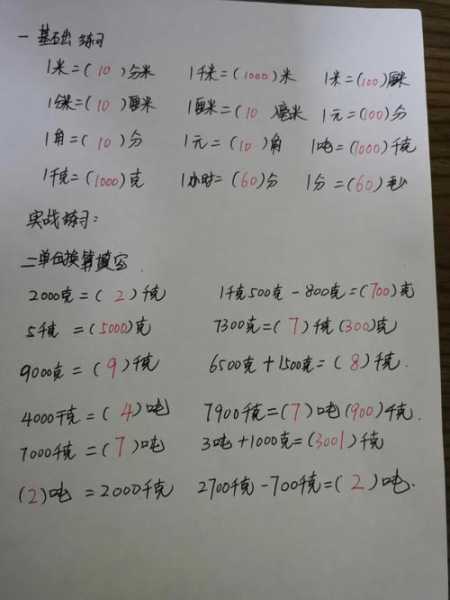 一 基础练习
1米=(10)分米 1千米=(1000)米 1米=(100)厘米
1分米=(10)厘米 1厘米=(10)毫米 1元=(100)分
1角=(10)分 1元=(10)角 1吨=(1000)千克
1千克=(1000)克 1小时=(60)分 1分=(60)秒
实战练习:
二单位换算填写
2000克=(2)千克 1千克500克-800克=(700)克
5千克=(5000)克 7300克=(7)千克(300)克
9000克=(9)千克 6500克+1500克=(8)千克.
4000千克=(4)吨 7900千克=(7)吨(900)千克.
7000千克=(7)吨 3吨+1000克=(3001)千克
(2)吨=2000千克 2700千克-700千克=(2)吨.